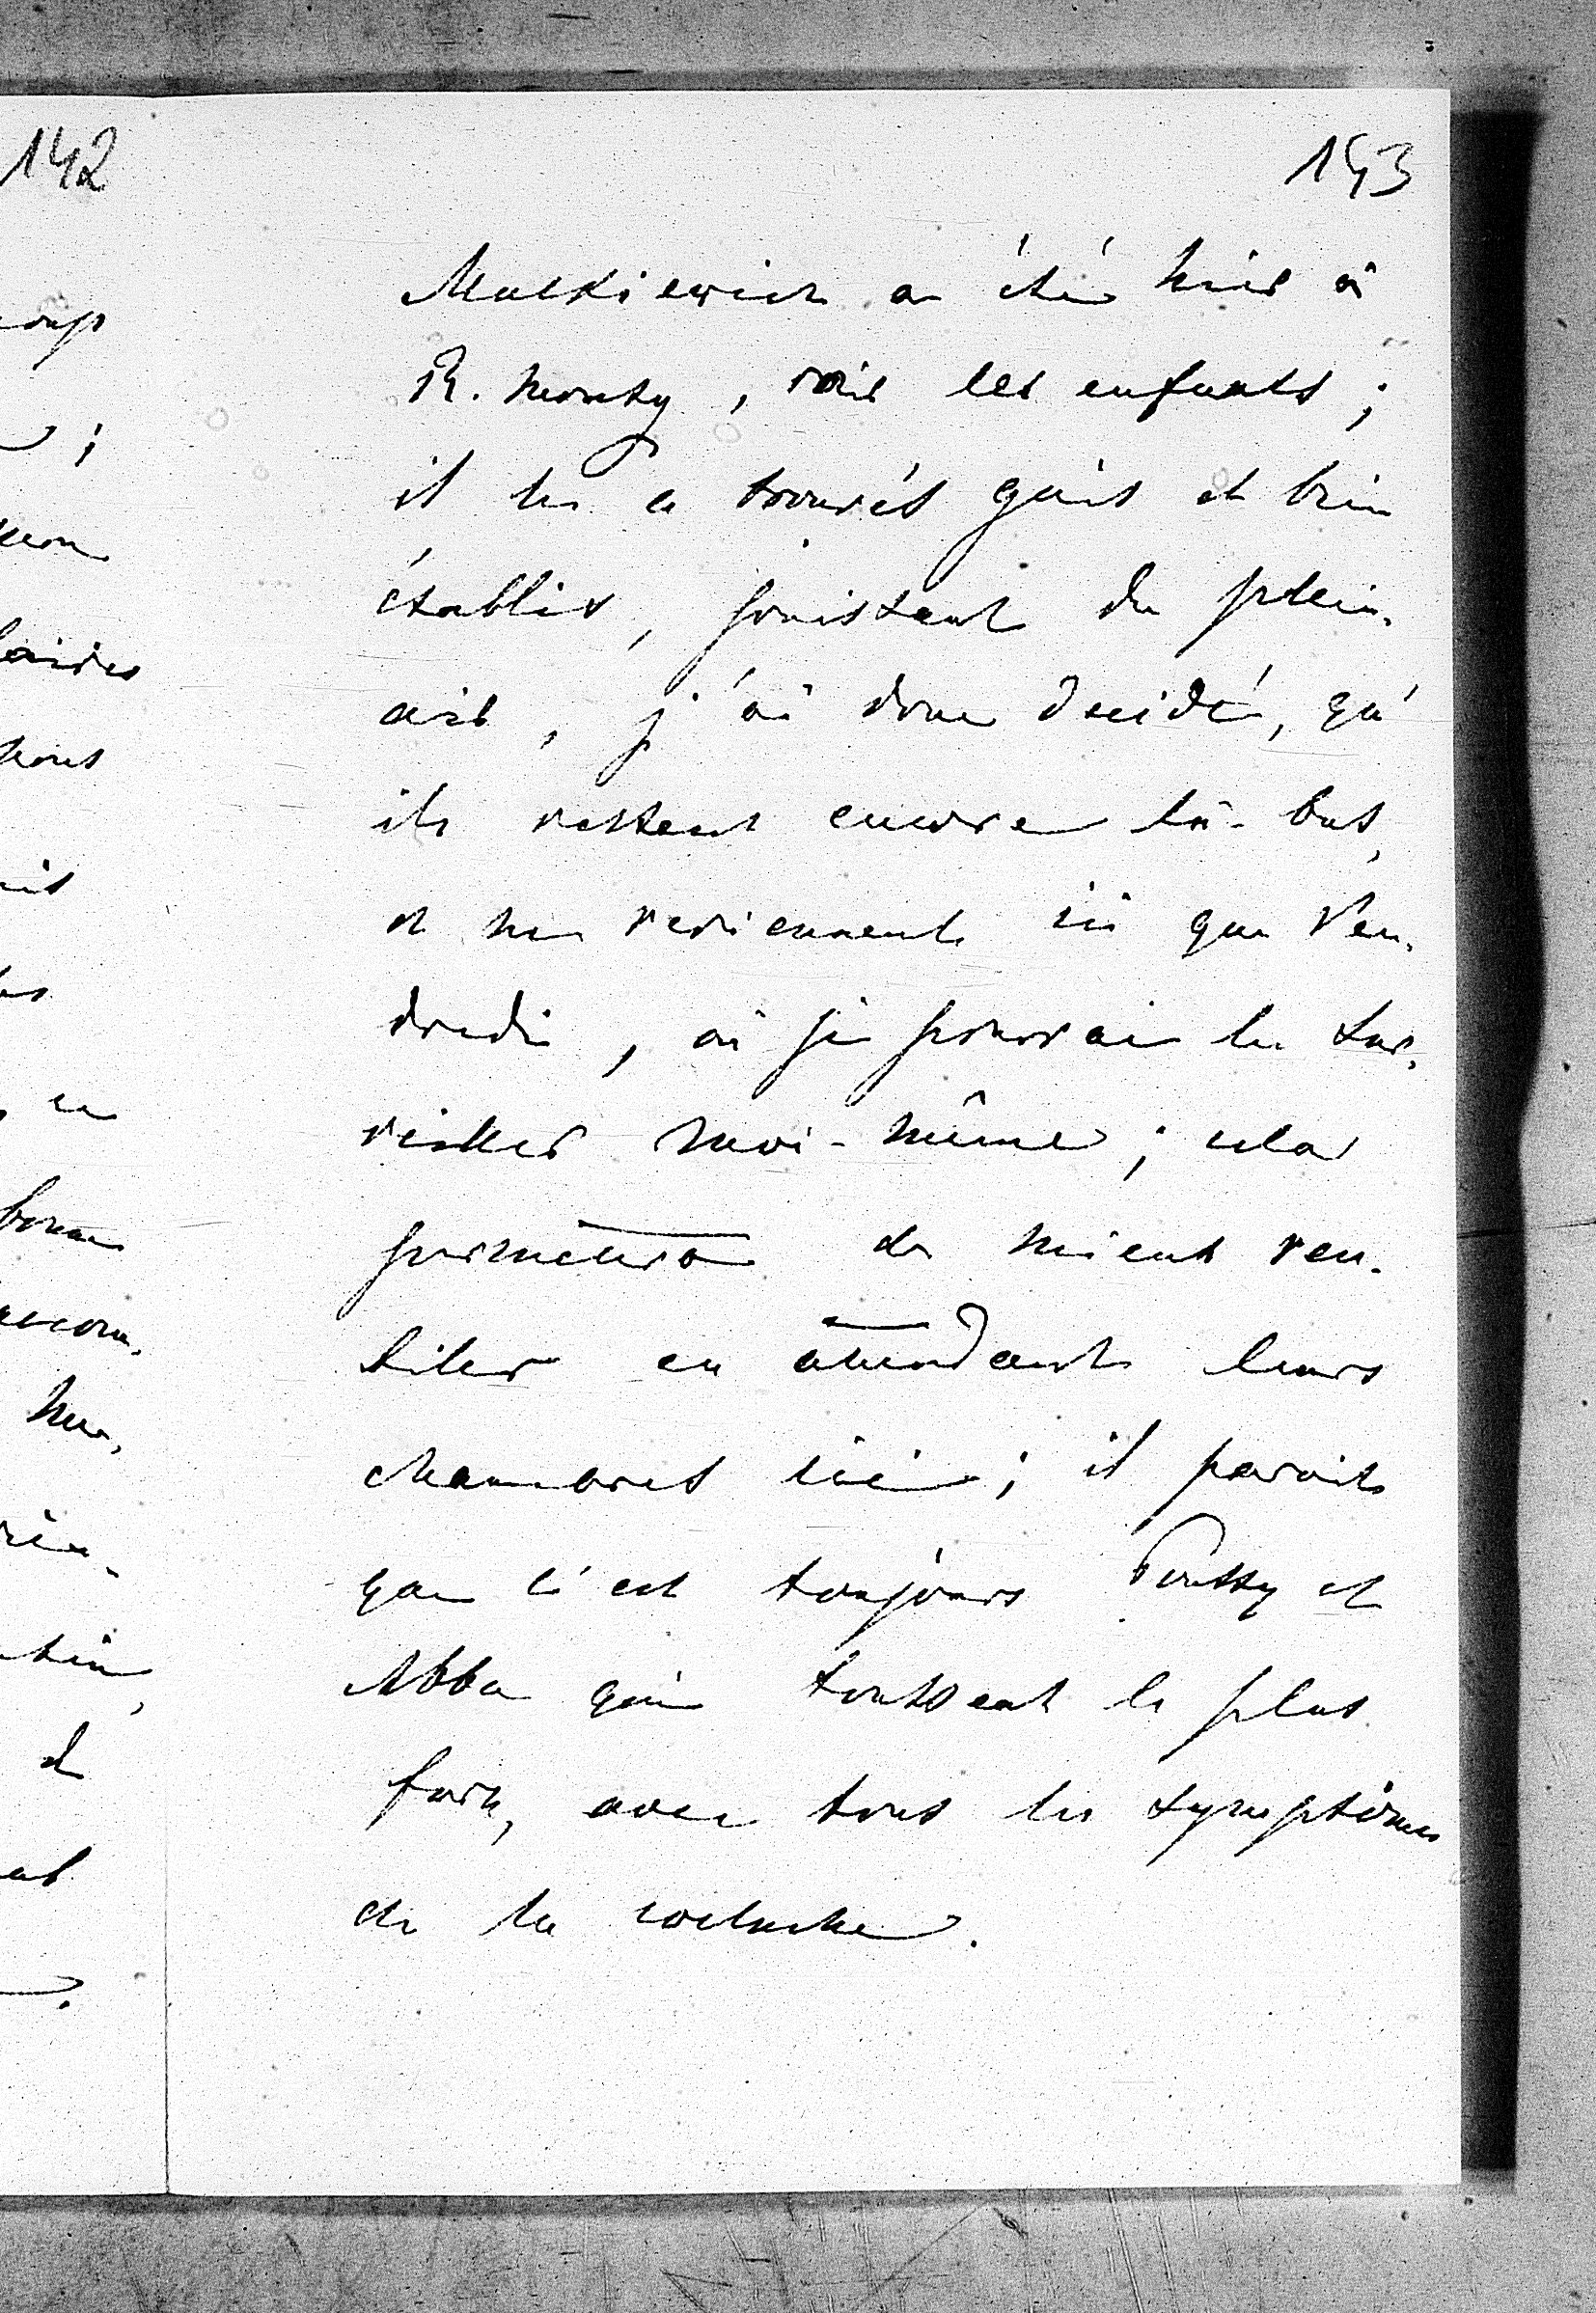 142
143
Mackiewicz a été hier à
R. monty, voir les enfants;
il les a trouvés gais et bien
établis, jouissent du plein-
air, j'ai donc décidé, qu'
ils restent encore là-bas,
et ne reviennent ici que Ven-
dredi, où je pourrai les sur-
veiller moi-même; cela
permettra de mieux ven-
tiler en attendant leurs
chambres ici; il parait
que c'est toujours Poussy et
Abba qui toussent le plus
fort, avec tous les symptômes
de la coqueluche.